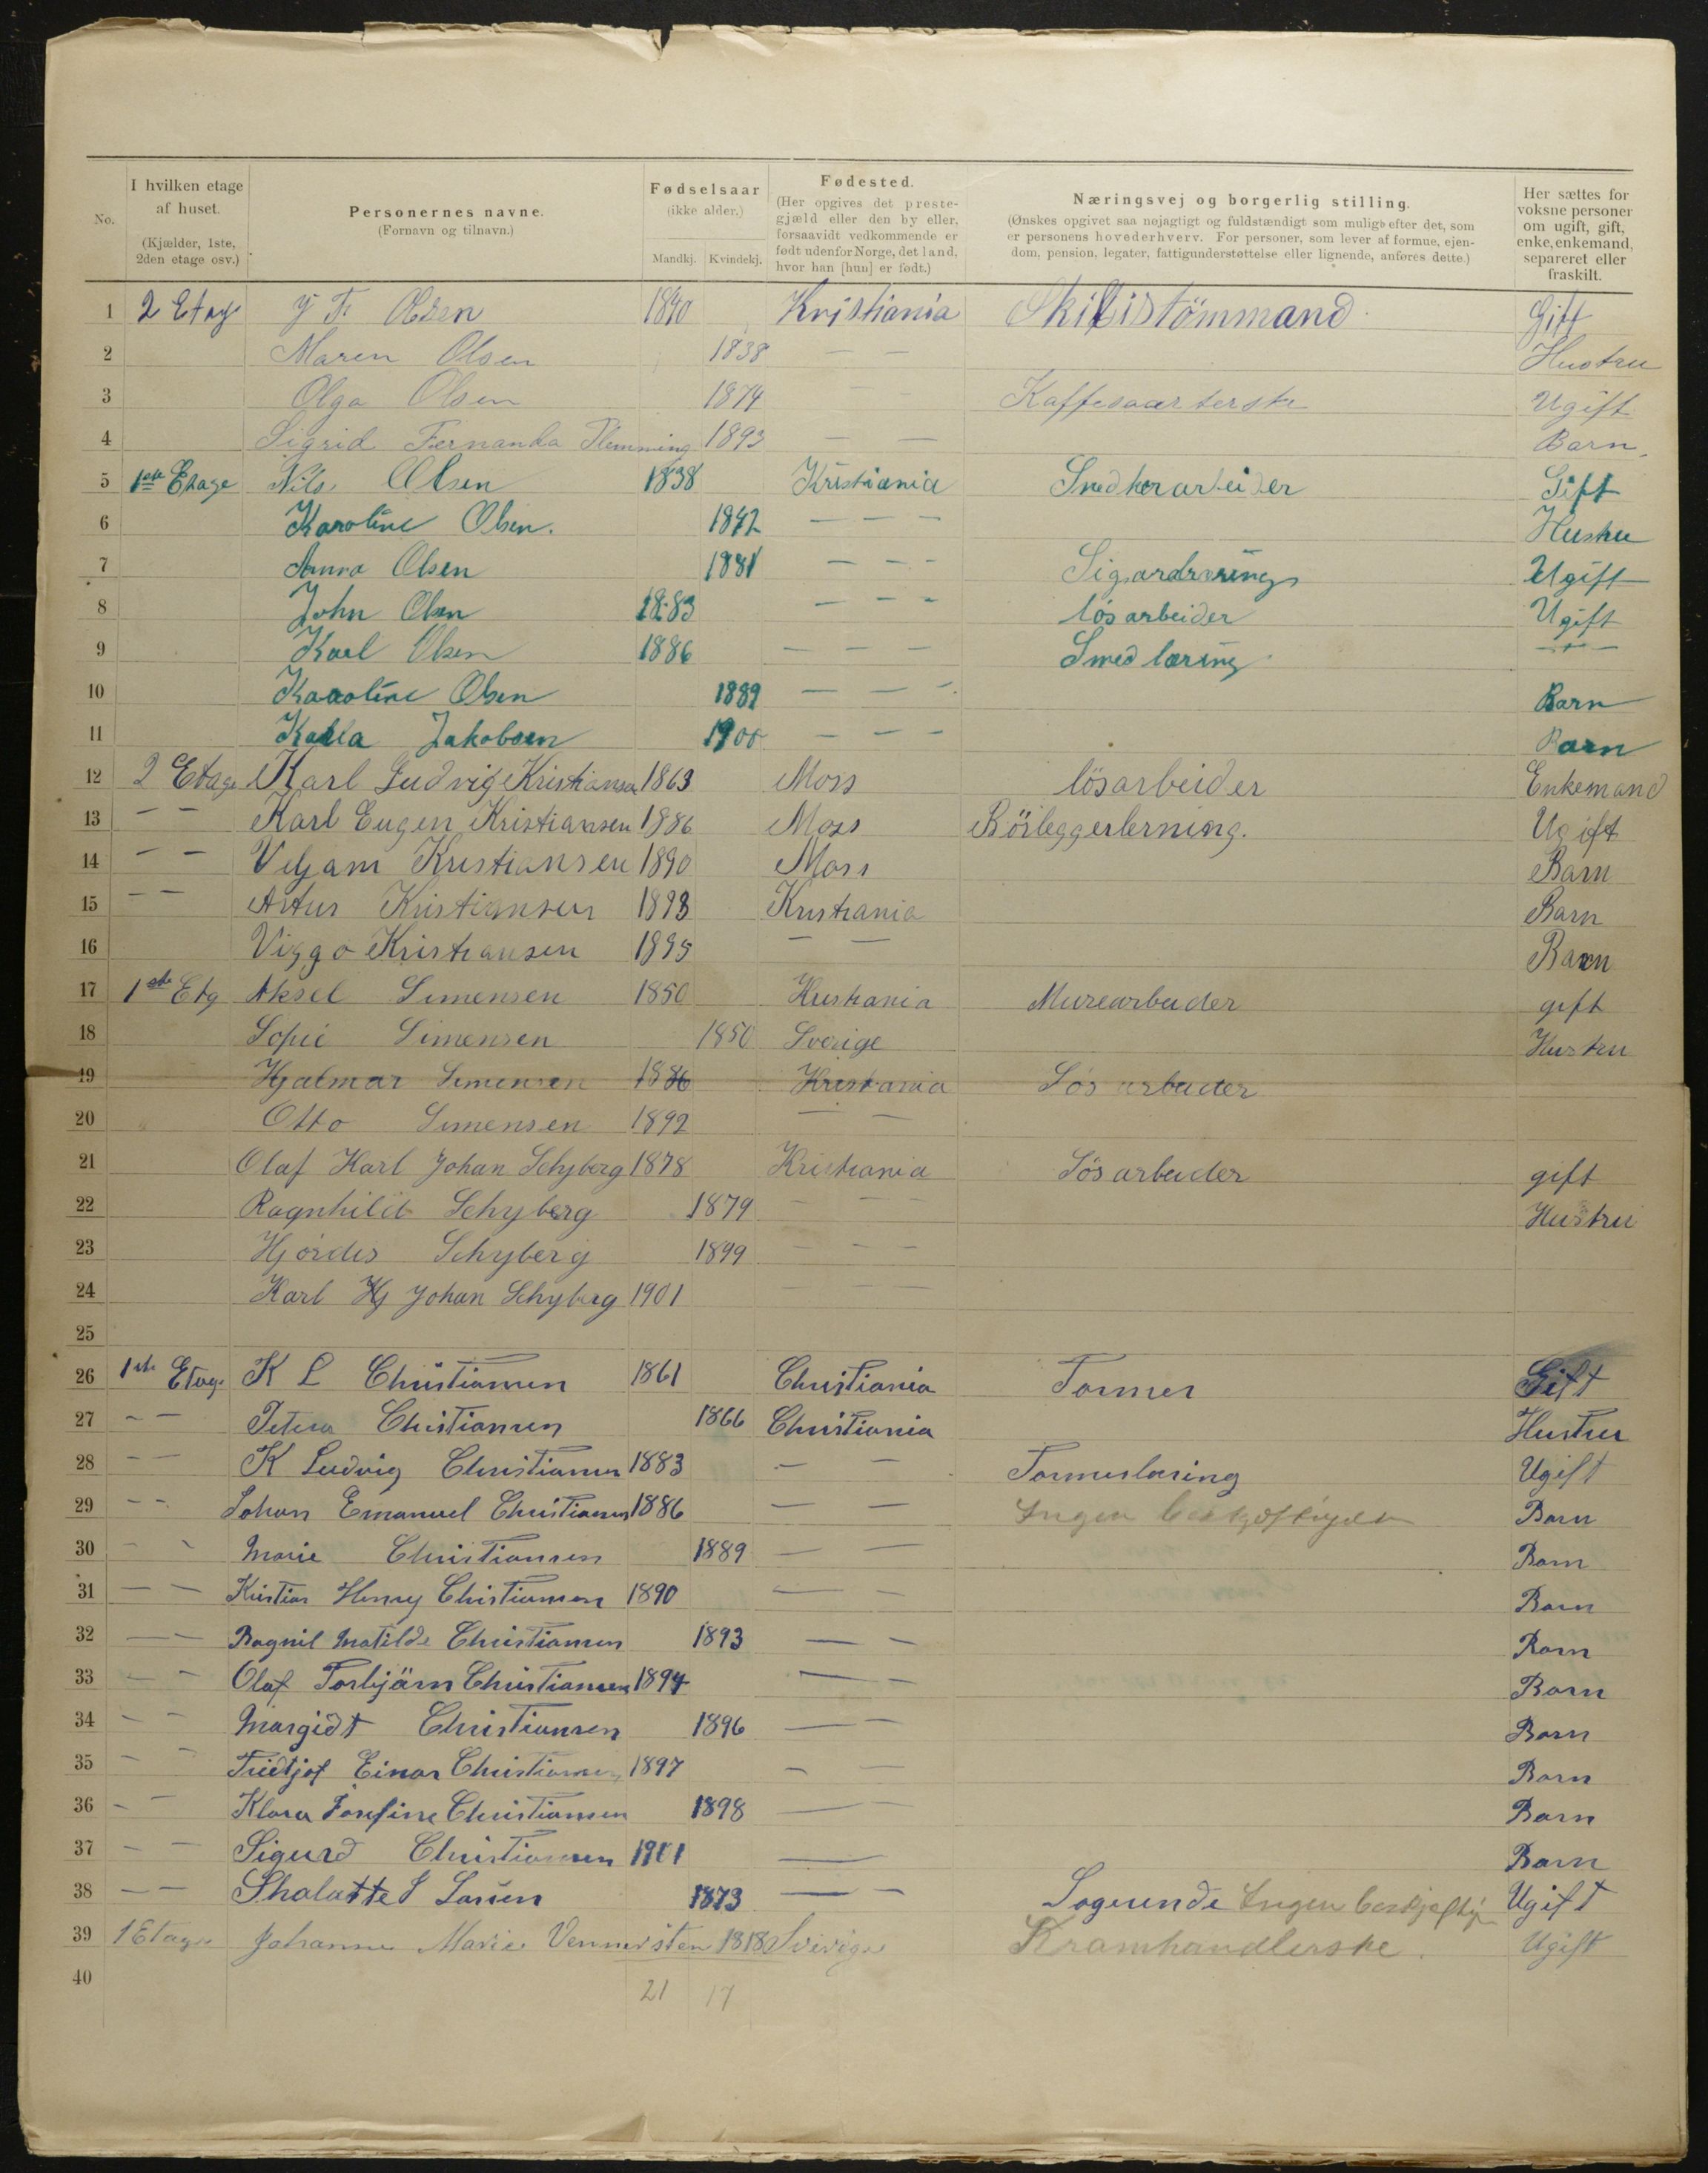 No.
I hvilken etage af huset. (Kjælder, 1ste, 2den etage osv.)
Personernes navne. (Fornavn og tilnavn.)
Fødselsaar (ikke alder.) Mandkj. Kvindekj.
Fødested. (Her opgives det prestegjæld eller den by eller, forsaavidt vedkommende er født udenfor Norge, det land, hvor han [hun] er født.)
Næringsvej og borgerlig stilling. (Ønskes opgivet saa nøjagtigt og fuldstændigt som muligt efter det, som er personens hovederhverv. For personer, som lever af formue, ejendom, pension, legater, fattigunderstøttelse eller lignende, anføres dette.)
Her sættes for voksne personer om ugift, gift, enke, enkemand, separeret eller fraskilt.
1 2 Etage J F. Olsen 1840 Kristiania Skibistömmand Gift
2 Maren Olsen 1838 — — Hustru
3 Olga Olsen 1874 — Kaffesaarterske Ugift
4 Sigrid Fernanda Flemming 1893 — — Barn
5 1ste Etage Nils Olsen 1838 Kristiania Snedkerarbeider Gift
6 Karoline Olsen. 1842 — — — Hustru
7 Anna Olsen 1881 — — — Ugift
8 John Olsen 1883 — — — løsarbeider Ugift
9 Karl Olsen 1886 — — — Smedlæring — " —
10 Karoline Olsen 1889 — — — Barn
11 Kalla Jakobsen 1900 — — — Barn
12 2 Etage Karl Ludvig Kristiansen 1863 Moss lösarbeider Enkemand
13 — — Karl Eugen Kristiansen 1886 Moss Rörleggerlerning. Ugift
14 — — Veljam Kristiansen 1890 Moss Barn
15 — — Artur Kristiansen 1893 Kristiania Barn
16 Viggo Kristiansen 1895 — — Barn
17 1ste Etg Aksel Simensen 1850 Kristiania Murearbeider gift
18 Sofie Simensen 1850 Sverige Hustru
19 Hjalmar Simensen 1886 Kristiania Løsarbeider
20 Otto Simensen 1892 — —
21 Olaf Karl Johan Schyberg 1878 Kristiania Løsarbeider gift
22 Ragnhild Schyberg 1879 — — — Hustru
23 Hjørdis Schyberg 1899 — — —
24 Karl Hj Johan Schyberg 1901 — —
25
26 1ste Etage K L Christiansen 1861 Christiania Former Gift
27 — — Petera Christiansen 1866 Christiania Hustru
28 — — K Ludvig Christiansen 1883 — — Formerlæring Ugift
29 — — Johan Emanuel Christiansen 1886 — — Ingen Barn
30 — — Marie Christiansen 1889 — — Barn
31 — — Kristian Henry Christiansen 1890 — — Barn
32 — — Ragnil Matilde Christiansen 1893 — — Barn
33 — — Olaf Torbjärn Christiansen 1894 — — Barn
34 — — Margidt Christiansen 1896 — — Barn
35 — — Fridtjof Einar Christiansen 1897 — — Barn
36 — — Klara Josefine Christiansen 1898 — — Barn
37 — — Sigurd Christiansen 1901 — Barn
38 — — Shalotte S Larsen 1873 — — Logerende Ingen Ugift
39 1 Etage Johanne Marie 1818 Sverige Kramhandlerske. Ugift
40
21 17